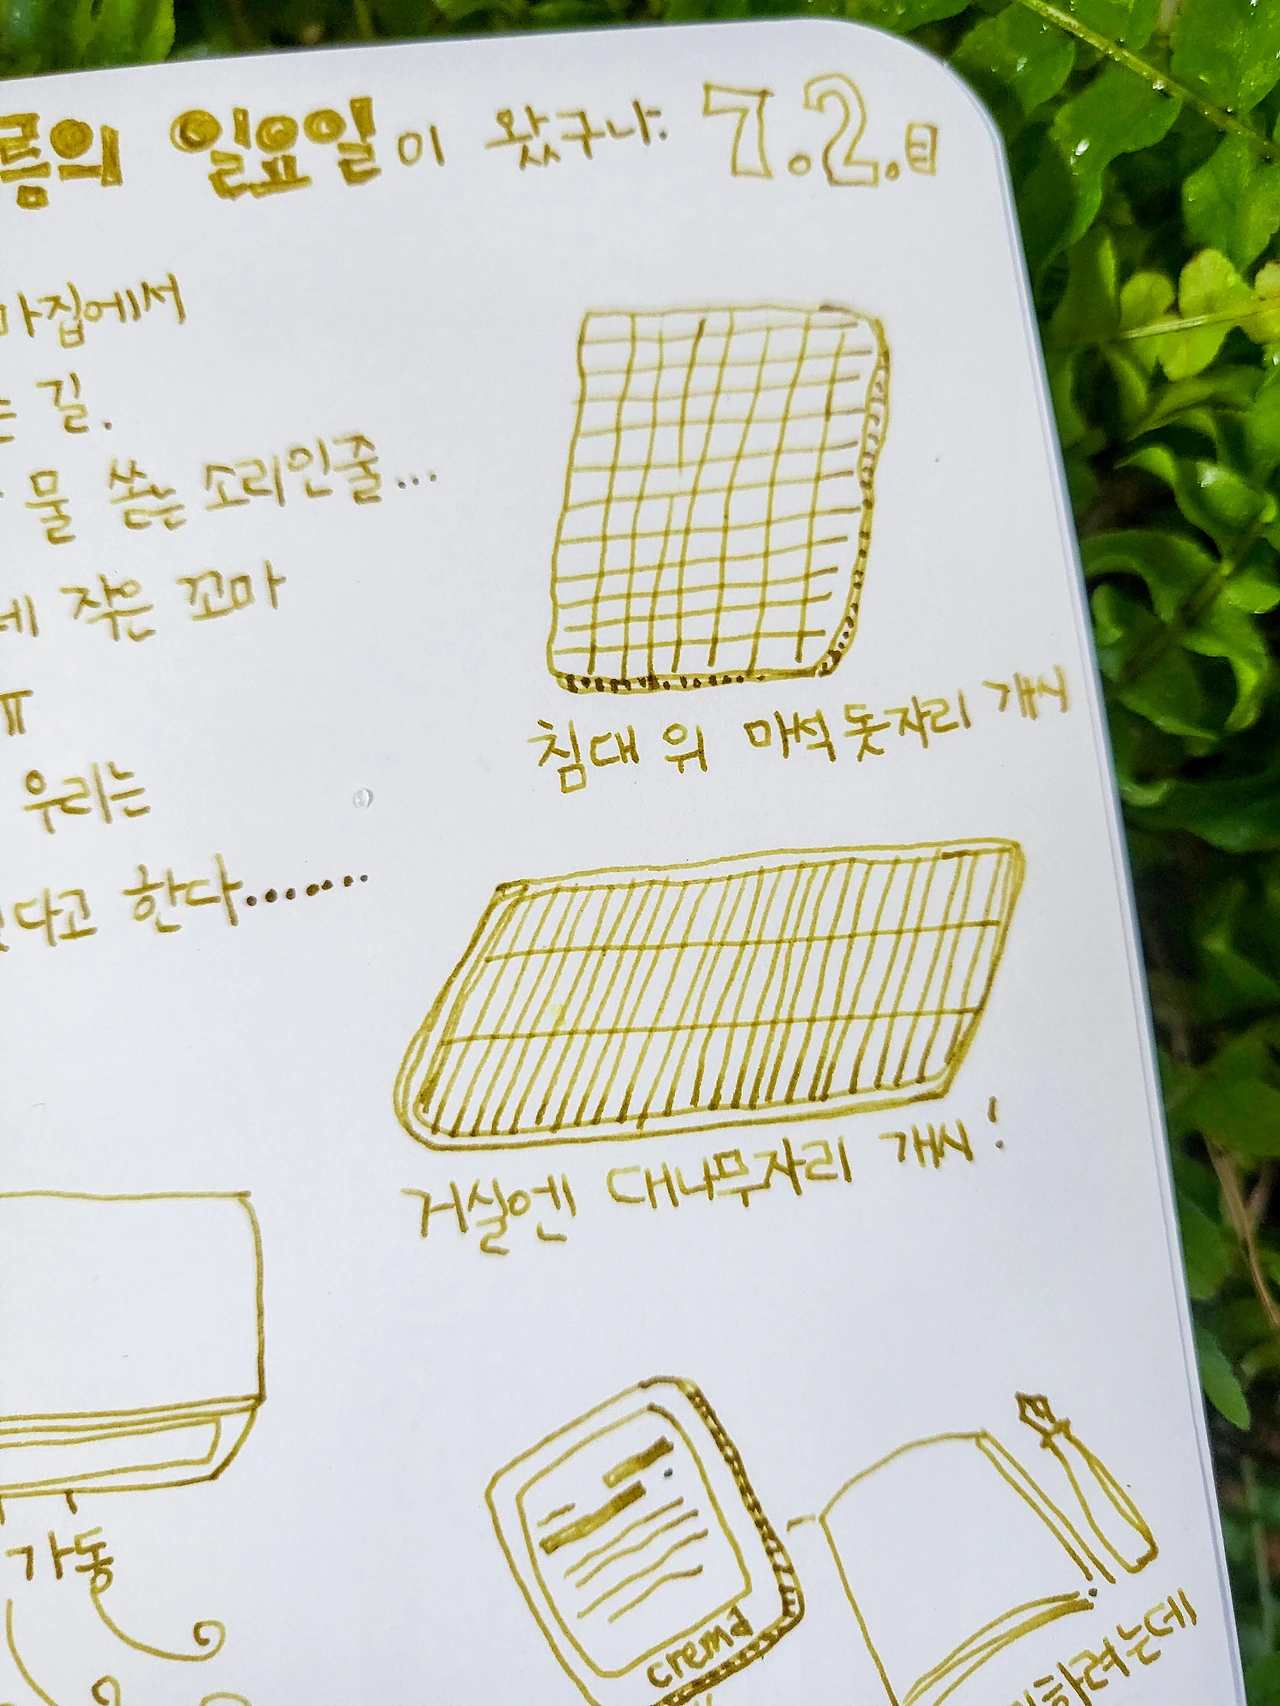 름의 일요일이 왔구나. 7.2.日
마집에서
는 길.
물 쏟는 소리인줄...
데 작은 꼬마
ㅠ
우리는
다고 한다.......
침대 위 마석돗자리 개시
거실엔 대나무자리 개시!
가동
crema
하려는데